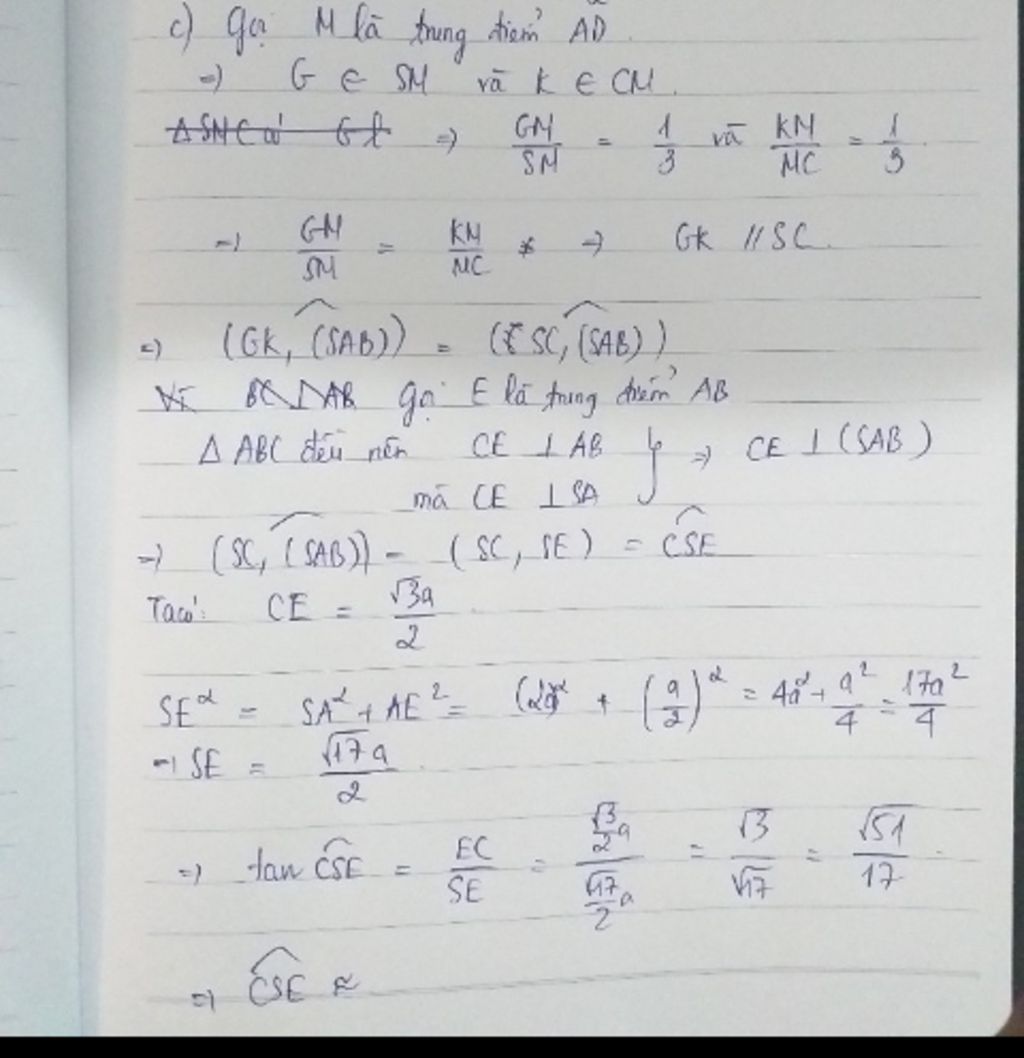 c) Gọi M là trung điểm AD.
=> G ∈ SM và K ∈ CM.
ΔSMC có G => GM/SM = 1/3 và KM/MC = 1/3.
=> GM/SM = KM/MC => GK // SC.
=> (GK, (SAB)) = (SC, (SAB))
Vì BC ⊥ AB gọi E là trung điểm AB
Δ ABC đều nên CE ⊥ AB } => CE ⊥ (SAB)
mà CE ⊥ SA
=> (SC, (SAB)) = (SC, SE) = CSE
Ta có: CE = √3a/2.
SE² = SA² + AE² = (2a)² + (a/2)² = 4a² + a²/4 = 17a²/4
=> SE = √17a/2.
=> tan CSE = EC/SE = (√3/2 a)/(√17/2 a) = √3/√17 = √51/17.
=> CSE ≈